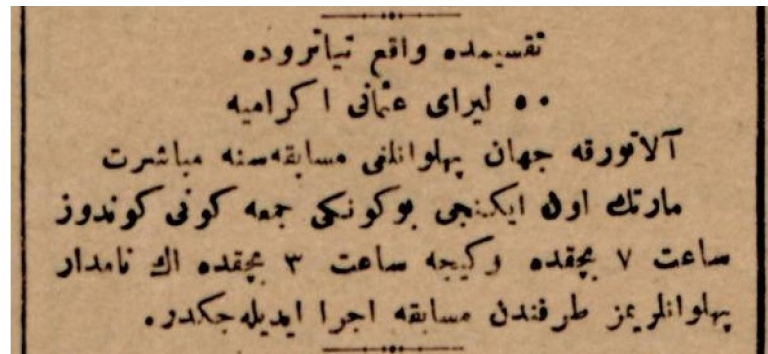 تقسیمده واقع تیاتروده
٥٠ لیرای عثمانی اکرامیه
آلاتورقه جهان پهلوانلغی مسابقه‌سنه مباشرت
مارتك اون ایکنجی بوکونکی جمعه کونی کوندوز
ساعت ٧ بچقده و کیجه ساعت ٣ بچقده اك نامدار
پهلوانلریمز طرفندن مسابقه اجرا ایدیله‌جکدر.